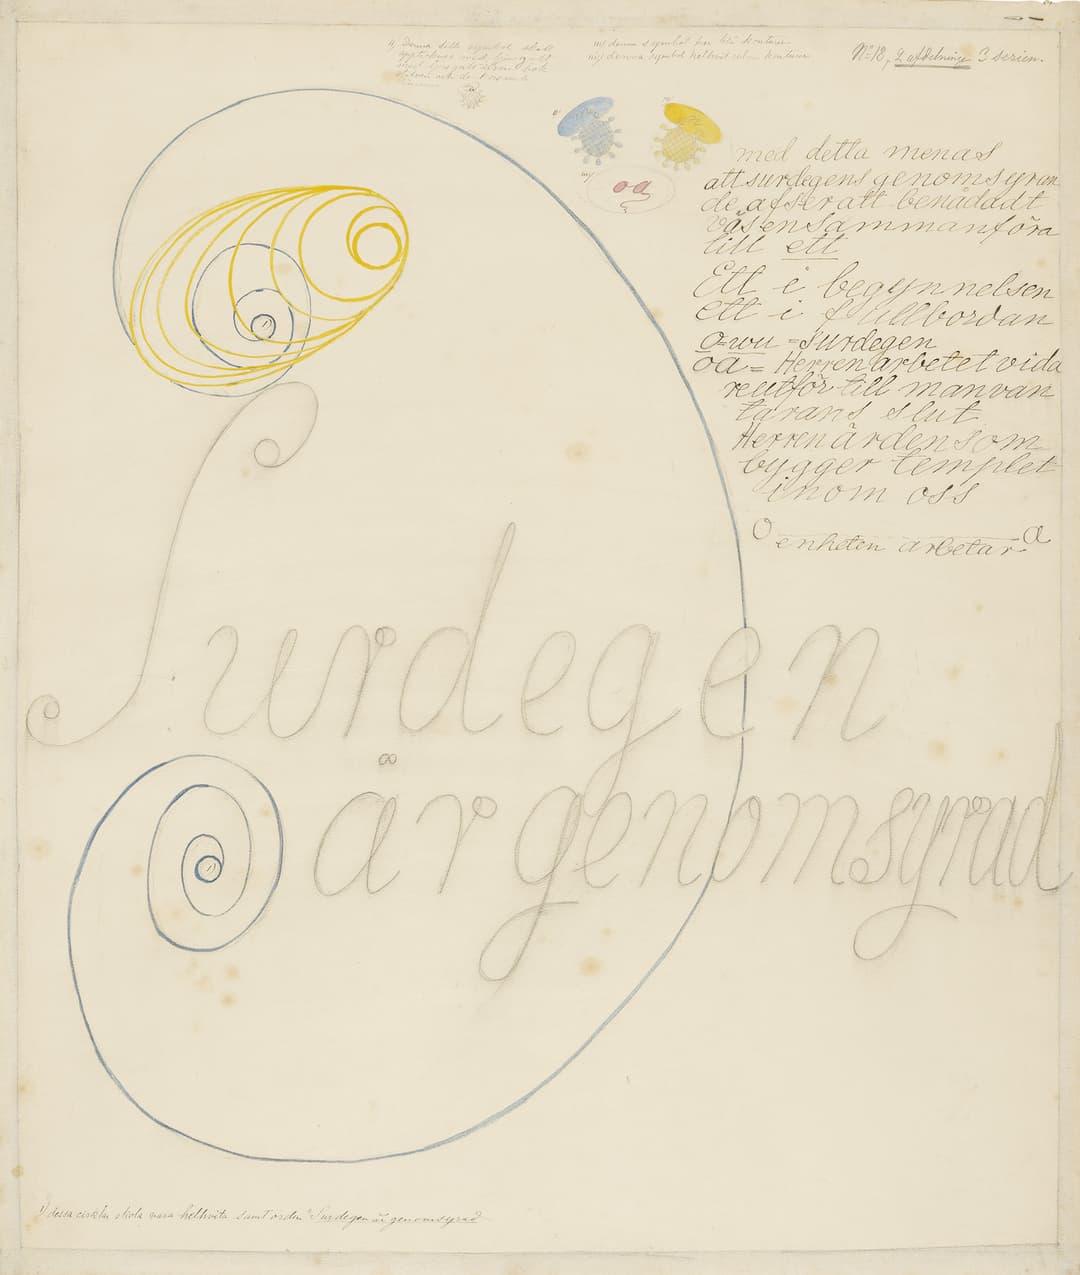 No 18, 2 afdelningen 3 serien.
n) Denna skall symbol skall
m) denna symbol har blå konturer
m) denna symbol helhvit utan konturer
med detta menas
att surdegens genomsyran
de afser att benådadt
väsen sammanföra
till ett
Ett i begynnelsen
ett i fullbordan
o-wu = Surdegen
oa = Herren arbetet vida
re utför till manvan
tarans slut
Herren är den som
bygger templet
inom oss
o enheten arbetar a
oa
Surdegen
är genomsyrad
1) dessa cirklar skola vara helhvita samt orden "Surdegen är genomsyrad